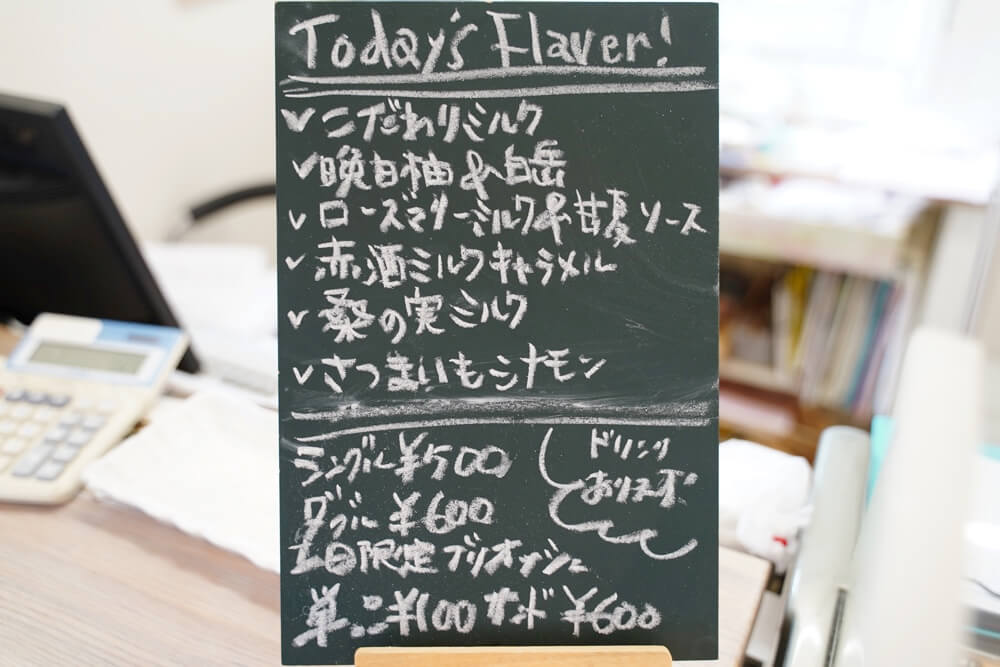 Today's Flaver!
✓こだわりミルク
✓晩白柚&白岳
✓ローズマリーミルク&甘夏ソース
✓赤酒ミルクキャラメル
✓桑の実ミルク
✓さつまいもシナモン
シングル ¥500
ドリンク
あります
ダブル ¥600
土日限定ブリオッシュ
単品¥100 サンド ¥600